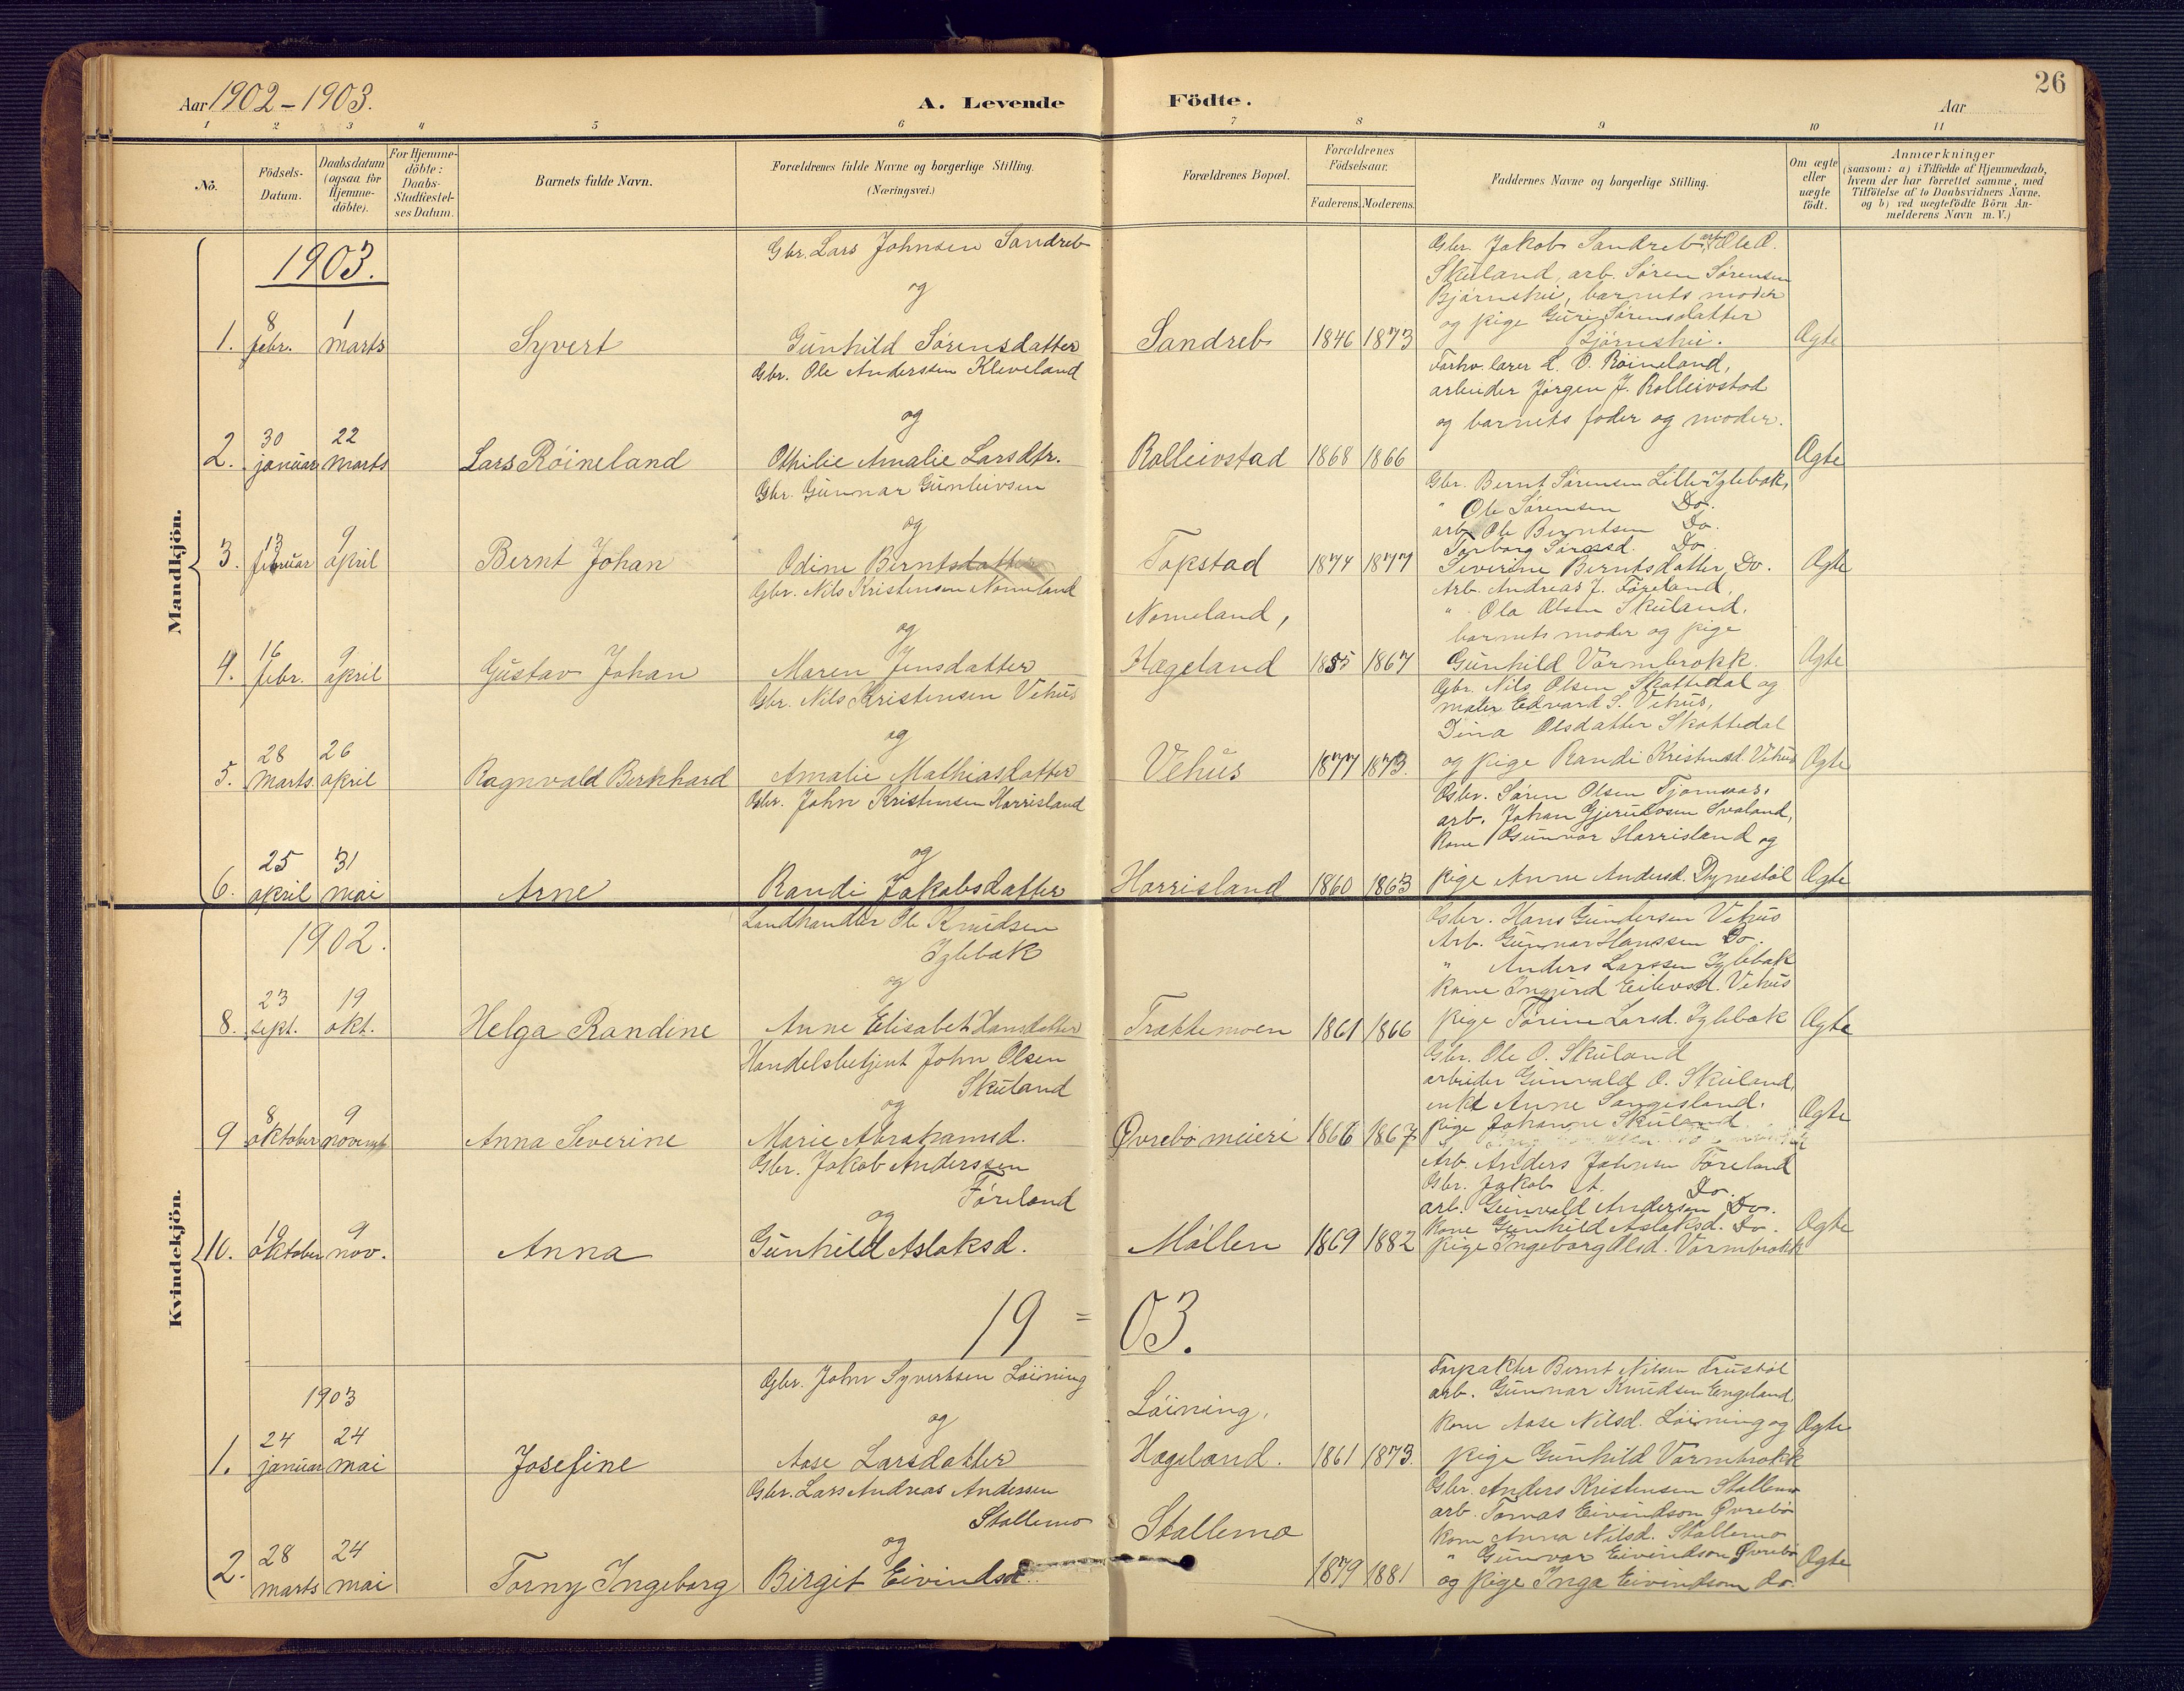 Aar 1902-1903.
A. Levende Födte.
Aar
26
1 2 3 4 5 6 7 8 9 10 11
Nò.
Födsels-
Datum.
Daabsdatum
(ogsaa for
Hjemme-
döbte).
For Hjemme-
döbte:
Daabs-
Stadfæstel-
ses Datum.
Barnets fulde Navn.
Forældrenes fulde Navne og borgerlige Stilling.
(Næringsvei.)
Forældrenes Bopæl.
Forældrenes
Födselsaar.
Faderens. Moderens.
Faddernes Navne og borgerlige Stilling.
Om ægte
eller
uægte
födt.
Anmærkninger
(saasom: a) i Tilfælde af Hjemmedaab,
hvem der har forrettet samme, med
Tilföielse af to Daabsvidners Navne,
og b) ved uægtefödte Börn An-
melderens Navn m. V.)
Mandkjön.
1903.
1. 8 febr. 1 marts
Syvert
Gbr. Lars Johnsen Sandreb
og
Gunhild Sörensdatter
Sandreb 1846 1873
Gbr. Jakob Sandreb, arb. Ole O.
Skuland, arb. Sören Sörensen
Bjørnshei, barnets moder
og pige Guri Sörensdatter
Bjørnshei.
Ægte
2. 30 januar 22 marts
Lars Röineland
Gbr. Ole Anderssen Kleveland
og
Othilie Amalie Larsdtr.
Rolleivstad 1868 1866
Forhv. lærer L. O. Röineland,
arbeider Jörgen J. Rolleivstad
og barnets fader og moder.
Ægte
3. 13 februar 9 april
Bernt Johan
Gbr. Gunnar Gunleivsen
og
Odine Berntsdatter
Topstad 1874 1877
Gbr. Bernt Sörensen Lille-Iglebæk,
" Ole Sörensen Do.
arb. Ole Berntsen Do.
Torborg Sörensd. Do.
Severine Berntsdatter Do.
Ægte
4. 16 febr. 9 april
Gustav Johan
Gbr. Nils Kristensen Nomeland
og
Maren Jensdatter
Nomeland,
Hægeland 1855 1867
Arb. Andreas J. Föreland,
" Ola Olsen Skuland,
barnets moder og pige
Gunhild Varmbrokk.
Ægte
5. 28 marts. 26 april
Ragnvald Berkhard
Gbr. Nils Kristensen Vehus
og
Amalie Mathiasdatter
Vehus 1877 1873.
Gbr. Nils Olsen Skottedal og
maler Edvard S. Vehus,
Dina Olsdatter Skottedal
og pige Randi Kristensd. Vehus
Ægte
6. 25 april 31 mai
Arne
Gbr. John Kristensen Harrisland
og
Randi Jakobsdatter
Harrisland 1860 1863
Gbr. Sören Olsen Tjomsaas,
arb. Johan Gjerulvsen Svaland,
Kone Gunvor Harrisland og
pige Anne Andersd. Dynestöl
Ægte
Kvindekjön.
1902.
8. 23 sept. 19 okt.
Helga Randine
Landhandler Ole Knudsen
Iglebæk
og
Anne Elisabet Hansdatter
Træktemoen 1861 1866
Gbr. Hans Gundersen Vehus
Arb. Gunnar Hanssen Do.
" Anders Larssen Iglebæk
Kone Ingjerd Eilevsd. Vehus
Pige Torine Larsd. Iglebæk
Ægte
9 8 oktober 9 novemb
Anna Severine
Handelsbetjent John Olsen
Skuland
og
Marie Abrahamsd.
Øvrebö meieri 1866 1867
Gbr. Ole O. Skuland
arbeider Gunvald O. Skuland,
enke Anne Sangesland,
pige Johanne Skuland.
Ægte
10. 19 oktober 9 nov.
Anna
Gbr. Jakob Anderssen
Föreland
og
Gunhild Aslaksd.
Möllen 1869 1882
Arb. Anders Johnsen Föreland
Gbr. Jakob A. Do.
arb. Gunvald Andersen Do.
Kone Gunhild Aslaksd. Do.
Pige Ingeborg Olsd. Varmbrokk
Ægte
19 = 03.
1903
1. 24 januar 24 mai
Josefine
Gbr. John Syvertsen Löining
og
Aase Larsdatter
Löining,
Hægeland. 1861 1873.
Forpakter Bernt Nilsen Frustöl
arb. Gunnar Knudsen Engeland
Kone Aase Nilsd. Löining og
pige Gunhild Varmbrokk
Ægte
2. 28 marts 24 mai
Torny Ingeborg
Gbr. Lars Andreas Andersen
Stallemo
og
Birgit Eivindsd.
Stallemo
1879 1881
Gbr. Anders Kristensen Stallemo
arb. Tomas Eivindson Øvrebö
Kone Anna Nilsd. Stallemo
" Gunvor Eivindson Øvrebö
og pige Inga Eivindson do.
Ægte